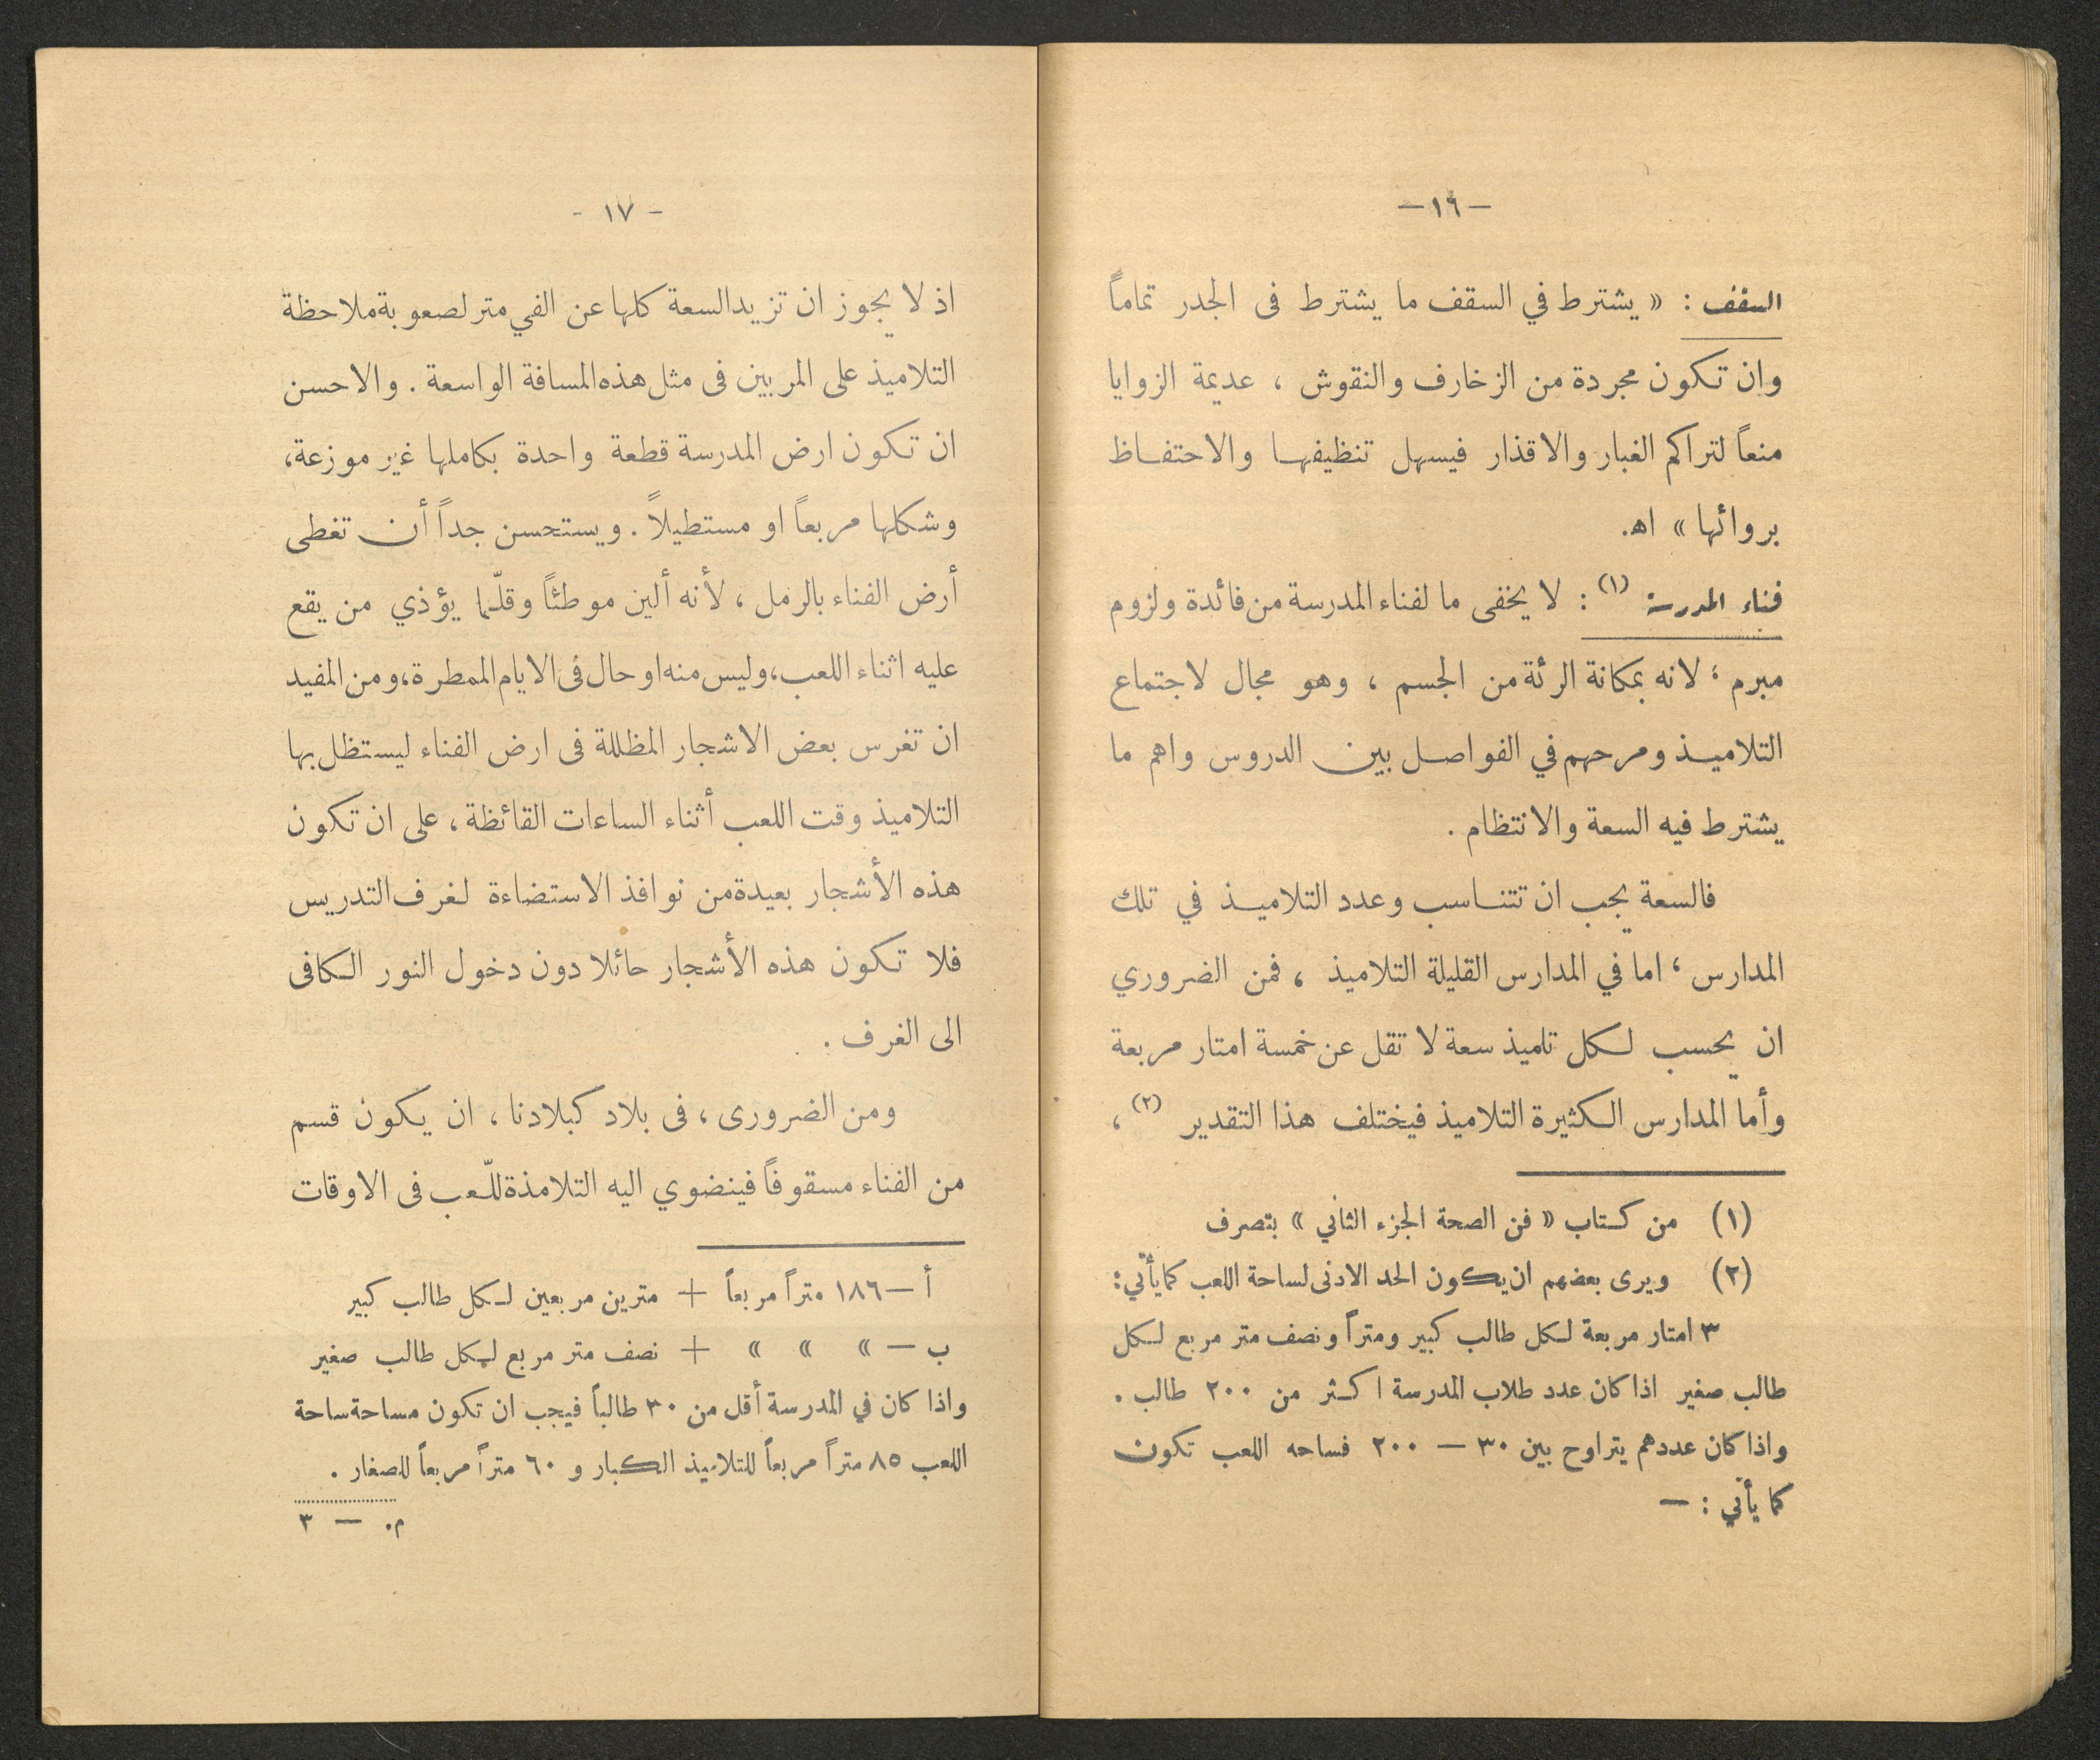 — ١٦ —
السقف : « يشترط في السقف ما يشترط فى الجدر تماماً
وان تكون مجردة من الزخارف والنقوش ، عديمة الزوايا
منعاً لتراكم الغبار والاقذار فيسهل تنظيفها والاحتفاظ
بروائها » اهـ.
فناء المدرسة (١) : لا يخفى ما لفناء المدرسة من فائدة ولزوم
مبرم ؛ لانه بمكانة الرئة من الجسم ، وهو مجال لاجتماع
التلاميذ ومرحهم في الفواصل بين الدروس واهم ما
يشترط فيه السعة والانتظام .
فالسعة يجب ان تتناسب وعدد التلاميذ في تلك
المدارس ، اما في المدارس القليلة التلاميذ ، فمن الضروري
ان يحسب لكل تلميذ سعة لا تقل عن خمسة امتار مربعة
وأما المدارس الكثيرة التلاميذ فيختلف هذا التقدير (٢) ،
(١) من كتاب « فن الصحة الجزء الثاني » بتصرف
(٢) ويرى بعضهم ان يكون الحد الادنى لساحة اللعب كما يأتي :
٣ امتار مربعة لكل طالب كبير ومتراً ونصف متر مربع لكل
طالب صغير اذا كان عدد طلاب المدرسة اكثر من ٢٠٠ طالب .
واذا كان عددهم يتراوح بين ٣٠ — ٢٠٠ فساحه اللعب تكون
كما يأتي : —
- ١٧ -
اذ لا يجوز ان تزيد السعة كلها عن الفي متر لصعوبة ملاحظة
التلاميذ على المربين فى مثل هذه المسافة الواسعة . والاحسن
ان تكون ارض المدرسة قطعة واحدة بكاملها غير موزعة،
وشكلها مربعاً او مستطيلاً . ويستحسن جداً أن تغطى
أرض الفناء بالرمل ، لأنه ألين موطئاً وقلّما يؤذي من يقع
عليه اثناء اللعب، وليس منه اوحال فى الايام الممطرة، ومن المفيد
ان تغرس بعض الاشجار المظللة فى ارض الفناء ليستظل بها
التلاميذ وقت اللعب أثناء الساعات القائظة ، على ان تكون
هذه الأشجار بعيدة من نوافذ الاستضاءة لغرف التدريس
فلا تكون هذه الأشجار حائلا دون دخول النور الكافى
الى الغرف .
ومن الضرورى ، فى بلاد كبلادنا ، ان يكون قسم
من الفناء مسقوفاً فينضوي اليه التلامذة للّعب فى الاوقات
أ — ١٨٦ متراً مربعاً + مترين مربعين لكل طالب كبير
ب — » » » + نصف متر مربع لكل طالب صغير
واذا كان في المدرسة أقل من ٣٠ طالباً فيجب ان تكون مساحة ساحة
اللعب ٨٥ متراً مربعاً للتلاميذ الكبار و ٦٠ متراً مربعاً للصغار .
م. — ٣